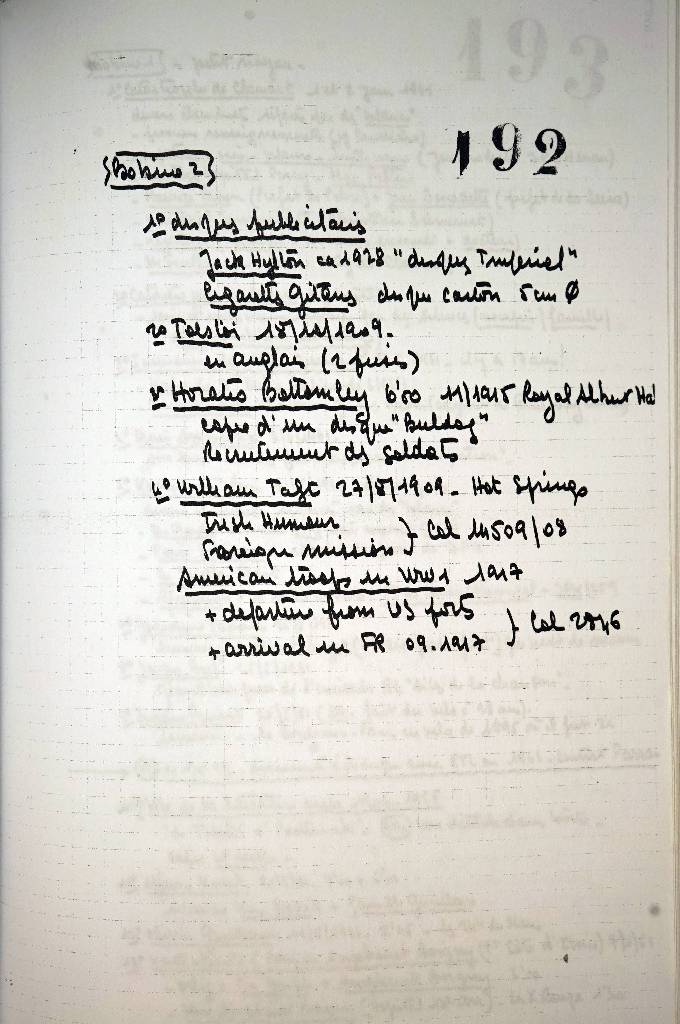 192
Bobine 2
1° disques publicitaires
Jack Hylton ca 1928 "disques Impérial"
Cigarettes Gitanes disque carton 5 cm Ø
2° Tolstoï 18/10/1909.
en anglais (2 prises)
Horatio Bottomley 6'00 11/1915 Royal Albert Hal
copie d'un disque "Buldog"
Recrutement ds soldats
4° William Taft 27/8/1909 - Hot Springs
Irish Humour
Foreign mission } Col 14509/08
American troops in WW1 1917
+ departure from US port
+ arrival in FR 09.1917 } Col 2946